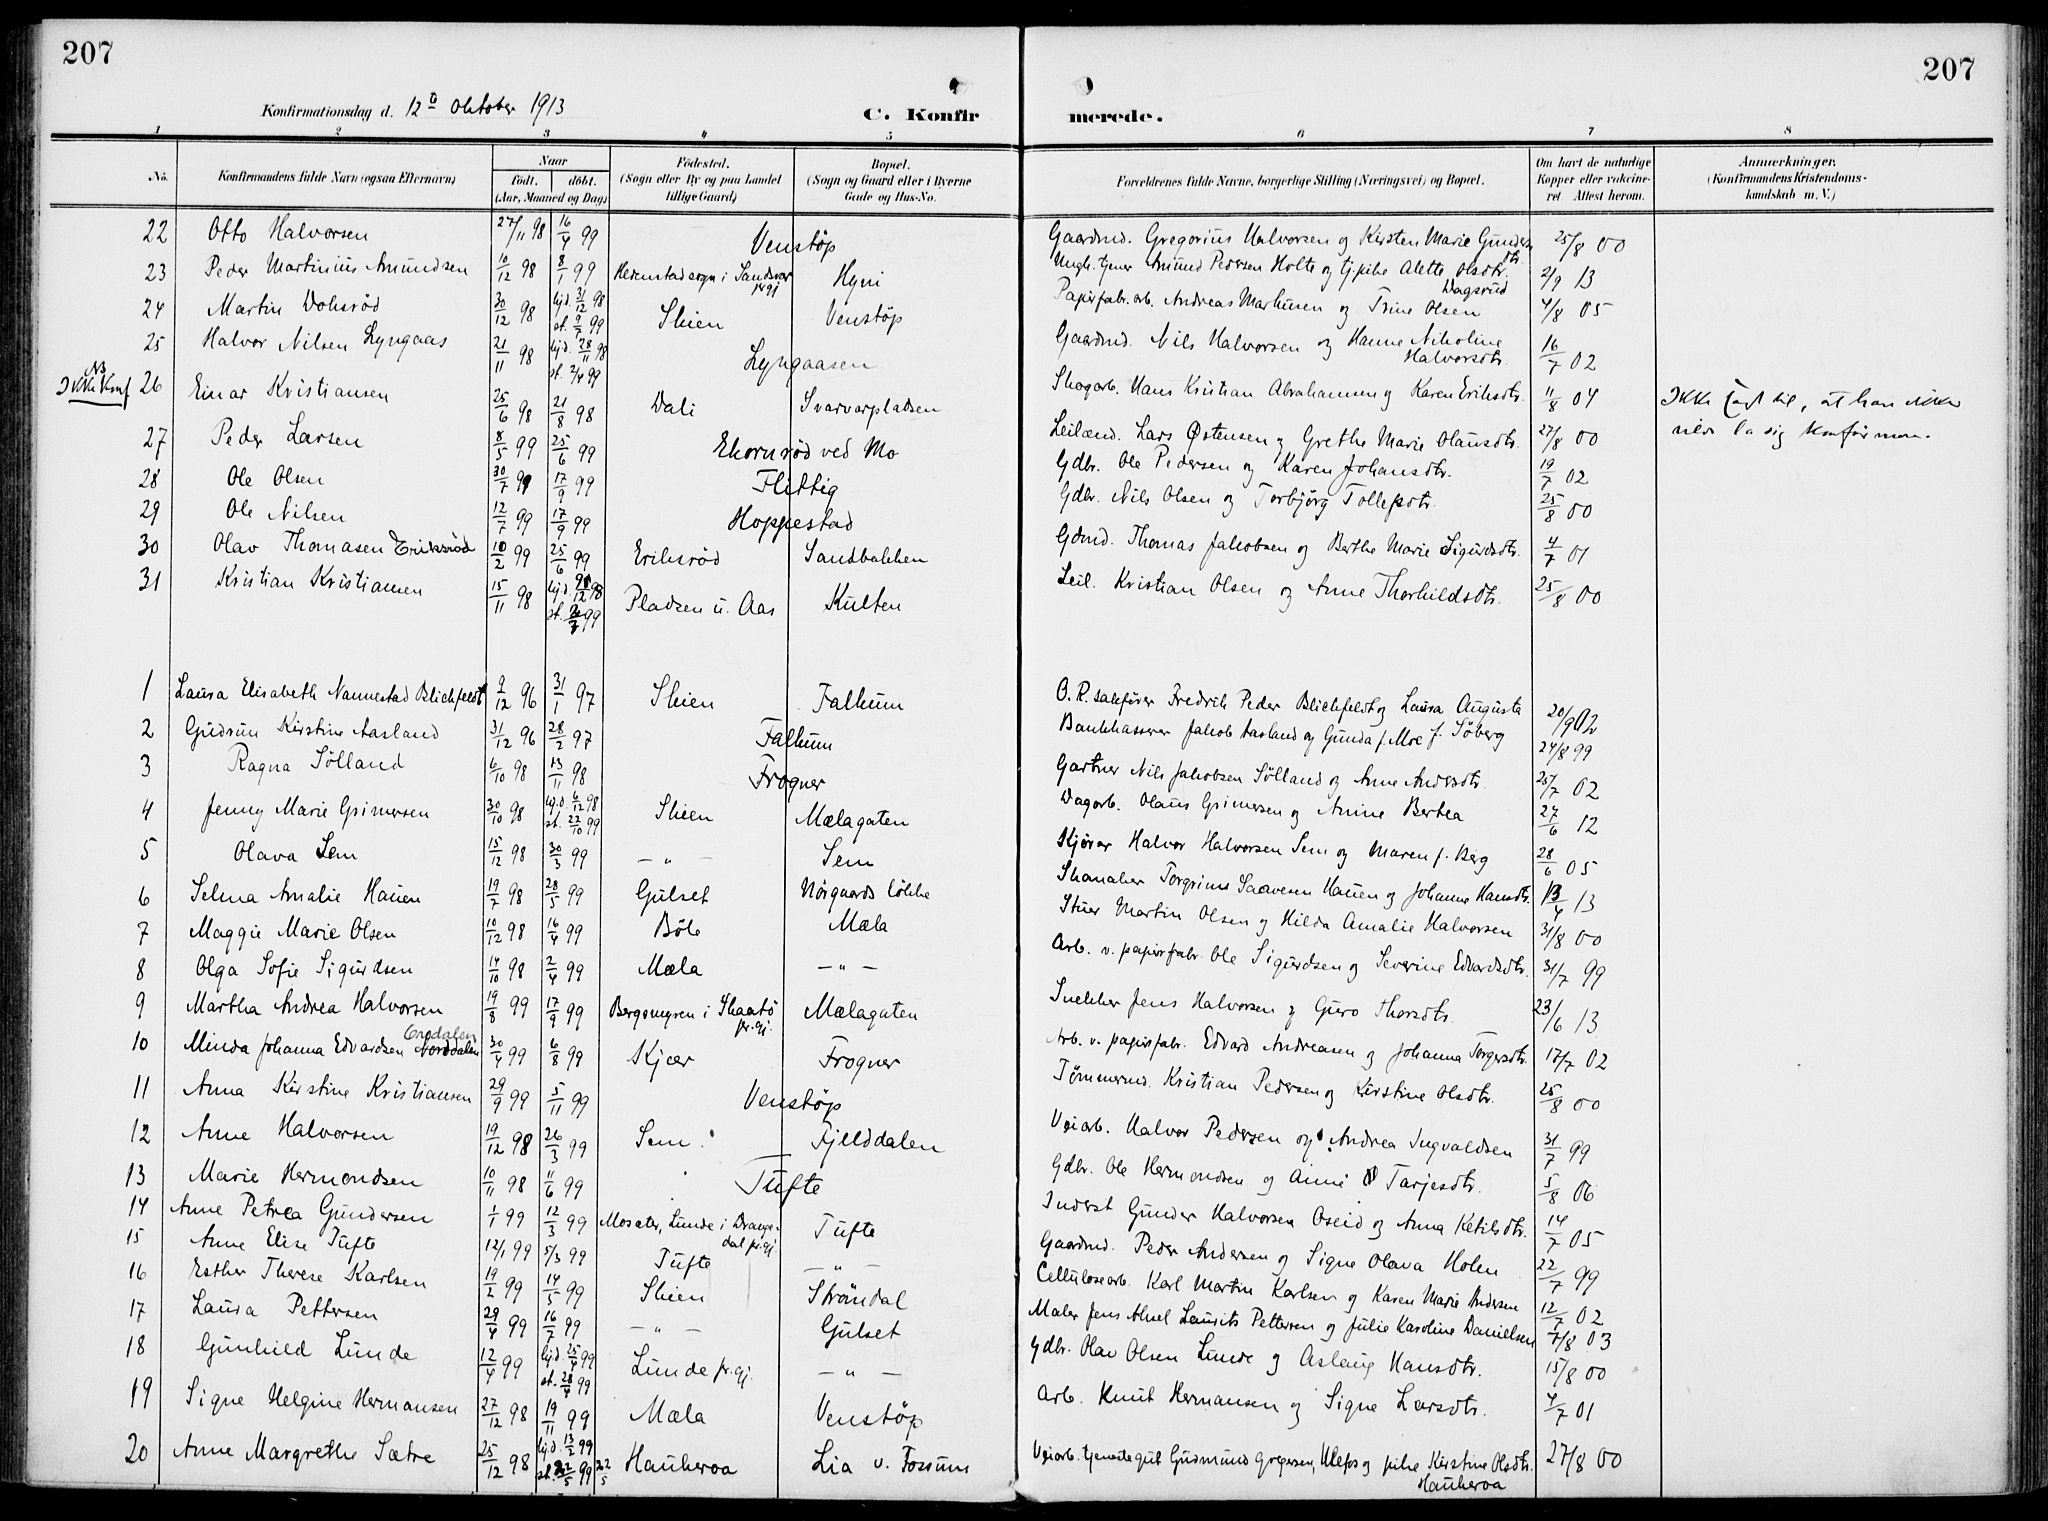 207
207
Konfirmationsdag d. 12te Oktober 1913
C. Konfirmerede.
1 2 3 4 5 6 7 8
No.
Konfirmandens fulde Navn (ogsaa Efternavn)
Naar
födt. döbt.
(Aar, Maaned og Dag)
Födested.
(Sogn eller By og paa Landet
tillige Gaard)
Bopæl.
(Sogn og Gaard eller i Byerne
Gade og Hus-No.
Forældrenes fulde Navne, borgerlige Stilling (Næringsvei) og Bopæl.
Om havt de naturlige
Kopper eller vakcine-
ret Attest herom.
Anmærkninger.
(Konfirmandens Kristendoms-
kundskab m. V.)
22 Otto Halvorsen 27/11 98 16/4 99 Venstøp Gaardmd. Gregorius Halvorsen og Kirsten Marie Gundersdtr. 25/8 00
23 Peder Martinius Amundsen 10/12 98 8/1 99 Hedenstad sogn i Sandsvær Hyni Ungk. tjener Amund Pedersen Holte og tj.pike Alette Olsdtr. Dagsrud 2/9 13
24 Martin Doksrød 30/12 98 hjd. 31/12 98 st. 9/7 99 Skien Venstøp Papirfabr.arb. Andreas Markusen og Trine Olsen 4/8 05
25 Halvor Nilsen Lyngaas 21/11 98 hjd. 28/11 98 st. 2/4 99 Lyngaasen Gaardmd. Nils Halvorsen og Hanne Nikoline Halvorsdtr. 16/7 02
NB Ikke Konf 26 Einar Kristiansen 25/6 98 21/8 98 Dali Svarvarpladsen Skogarb. Hans Kristian Abrahamsen og Karen Eriksdtr. 11/8 04 Ikke sagt til, at han ikke
vilde la sig konfirmere.
27 Peder Larsen 8/5 99 25/6 99 Ekornrød ved Mo Leilænd. Lars Østensen og Grethe Marie Olausdtr. 27/8 00
28 Ole Olsen 30/7 99 17/9 99 Flittig Gdbr. Ole Pedersen og Karen Johansdtr. 19/7 02
29 Ole Nilsen 12/7 99 17/9 99 Hoppestad Gdbr. Nils Olsen og Torbjørg Tollefsdtr. 25/8 00
30 Olav Thomasen Eriksrød 10/2 99 25/6 99 Eriksrød Sandbakken Gdmd. Thomas Jakobsen og Berthe Marie Sigurdsdtr. 4/7 01
31 Kristian Kristiansen 15/11 98 Pladsen u. Aas Kulten Leil. Kristian Olsen og Anne Thorkildsdtr. 25/8 00
1 Laura Elisabeth Nannestad Blichfeldt 9/12 96 31/1 97 Skien Falkum O.R.sakfører Fredrik Peder Blichfeldt og Laura Augusta f. Söberg 20/9 02
2 Gudrun Kirstine Aasland 31/12 96 28/2 97 Falkum Bankkasserer Jakob Aasland og Gunda f. Moe 24/8 99
3 Ragna Sölland 6/10 98 13/11 98 Frogner Gartner Nils Jakobsen Sölland og Anne Andersdtr. 25/7 02
4 Jenny Marie Grimersen 30/10 98 hjd. 6/12 98 st. 22/10 99 Skien Mælagaten Dagarb. Olaus Grimersen og Anine Bertea 27/6 12
5 Olava Sem 15/12 98 30/3 99 – " – Sem Kjører Halvor Halvorsen Sem og Maren f. Berg 28/6 05
6 Selma Amalie Hauen 19/7 98 28/5 99 Gulset Nörgaards lökke Skomaker Torgrims Saavesen Hauen og Johanne Hansdtr. 13/4 13
7 Maggie Marie Olsen 10/12 98 16/4 99 Böle Mæla Stuer Martin Olsen og Hilda Amalie Halvorsen 31/8 00
8 Olga Sofie Sigurdsen 14/10 98 2/4 99 Mæla – " – Arb. v. papirfabr. Ole Sigurdsen og Severine Edvardsdtr. 31/7 99
9 Martha Andrea Halvorsen 19/8 99 17/9 99 Bergsmyren i Skaatö pr.gj. Mælagaten Snekker Jens Halvorsen og Guro Thorsdtr. 23/6 13
10 Minda Johanna Edvardsen 30/4 99 6/8 99 Skjær Frogner Arb. v. papirfabr. Edvard Andreasen og Johanna Torgersdtr. 17/7 02
11 Anna Kirstine Kristiansen 29/9 99 5/11 99 Venstøp Tömmermd. Kristian Pedersen og Kirstine Olsdtr. 25/8 00
12 Anne Halvorsen 19/12 98 26/3 99 Sem Fjelldalen Veiarb. Halvor Pedersen og Andrea Ingvaldsen 31/7 99
13 Marie Hermondsen 10/11 98 11/6 99 Tufte Gdbr. Ole Hermondsen og Anne Tarjesdtr. 5/8 06
14 Anne Petrea Gundersen 1/1 99 12/3 99 Mosater, Lunde i Drangedal pr.gj. Tufte Inderst Gunder Halvorsen Oseid og Anna Ketilsdtr. 14/7 05
15 Anne Elise Tufte 12/1 99 5/3 99 Tufte – " – Gaardmd. Peder Andersen og Signe Olava Holen 22/7 99
16 Esther Therese Karlsen 19/2 99 14/5 99 Skien Strömdal Cellulosearb. Karl Martin Karlsen og Karen Marie Andersen 12/7 02
17 Laura Pettersen 29/4 99 16/7 99 – " – Gulset Maler Jens Aksel Laurits Pettersen og Julie Karoline Danielsen 7/8 03
18 Gunhild Lunde 12/4 99 hjd. 25/4 99 st. 28/4 99 Lunde pr.gj. – " – Gdbr. Olav Olsen Lunde og Aslaug Hansdtr. 15/8 00
19 Signe Helgine Hermansen 27/12 98 19/11 99 Mæla Venstöp Arb. Knut Hermansen og Signe Larsdtr. 4/7 01
20 Anne Margrethe Sætre 25/12 98 hjd. 13/2 99 st. 22/5 99 Haukeroa Lia v. Fossum Veiarb. tjenestegut Gudmund Gregersen, Ulefos og pike Kirstine Olsdtr. Haukeroa 27/8 00